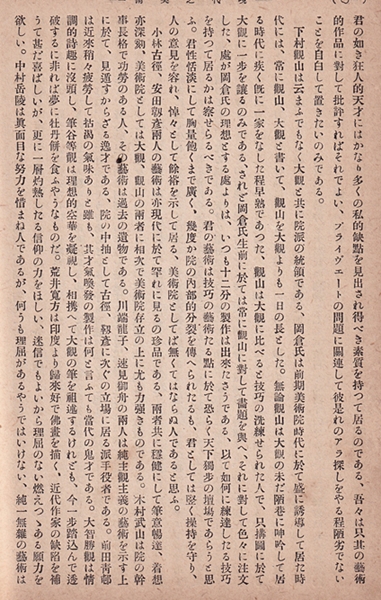 君の如き人的天才にはかなり多くの私的缺點を見出され得べき素質を持つて居るのである、吾々は只其の藝術
的作品に對して批評すればそれでよい、プライヴェートの問題に關連して彼是れのアラ探しをやる程陋劣でない
ことを自白して置きたいのみである。
下村觀山は云ふまでもなく大觀と共に院派の統領である、岡倉氏は前期美術院時代に於て盛に誘導して居た時
代には、常に觀山、大觀と書いて、觀山を大觀よりも一日の長とした。無論觀山は大觀の未だ陋巷に呻吟して居
る時代に疾く既に一家をなした程早熟であつた、觀山は大觀に比べると技巧の洗練せられた人で、只搆圖に於て
大觀に一歩を讓るのみである、されど岡倉氏生前に於ては常に觀山に對して畵題を與へ、それに對して色々に注文
した、處が岡倉氏の理想とする處よりは、いつも十二分の製作は出來たさうである、以て如何に練達したる技巧
を持つて居るかは察せらるべきである。君の藝術は技巧の藝術たる點に於て恐く天下獨歩の壇場であらうと思
ふ。君性恬淡にして胸量飽くまで廣く、幾度か院の内部的分裂を傳へられたるも、君としては堅く操持を守り、
人の意見を容れ、悼々として餘裕を示して居る、美術院としてば無くてはならぬ人であると思ふ。
小林古徑、安田靫彦兩人の藝術は亦現代に於て罕れに見るの珍品である、兩者共に穩健にして筆意暢達、着想
亦深勁、美術院としては大觀、觀山の兩者に相次で美術院存立の上に尤も力强きものである。木村武山は院の幹
事長格で功勞のある人、その藝術は過去の遺物である。川端龍子、速見御舟の兩人は純主觀主義の藝術を示す上
に於て、見遁すからざる逸才である、院の中抽として古徑、靫彦に次ぐの立場に居る派手役者である。前田靑邨
は近來稍々疲勞して枯渇の氣味ありと雖も、其才氣喚發の製作は何と言ふても當代の鬼才である。大智勝觀は情
調的詩趣に沒頭し、筆谷等觀は理想的空華を凝視し、相携へて大觀の筆を祖述するけれども、今一步踏込んで透
破するに非れば夢に牡丹餅を食ふやうなものだ。荒井寬方は印度より歸來好で佛畫を描く、近代作家の缺陷を補
うて甚だ喜ばしいが、更に一層灼熱したる信仰の力をほしい、迷信でもよいから理屈のない燃えつゝある願力を
欲しい。中村岳陵は眞面目な努力を惜まね人であるが、何うも理屈があるやうではいけない、純一無雜の藝術は